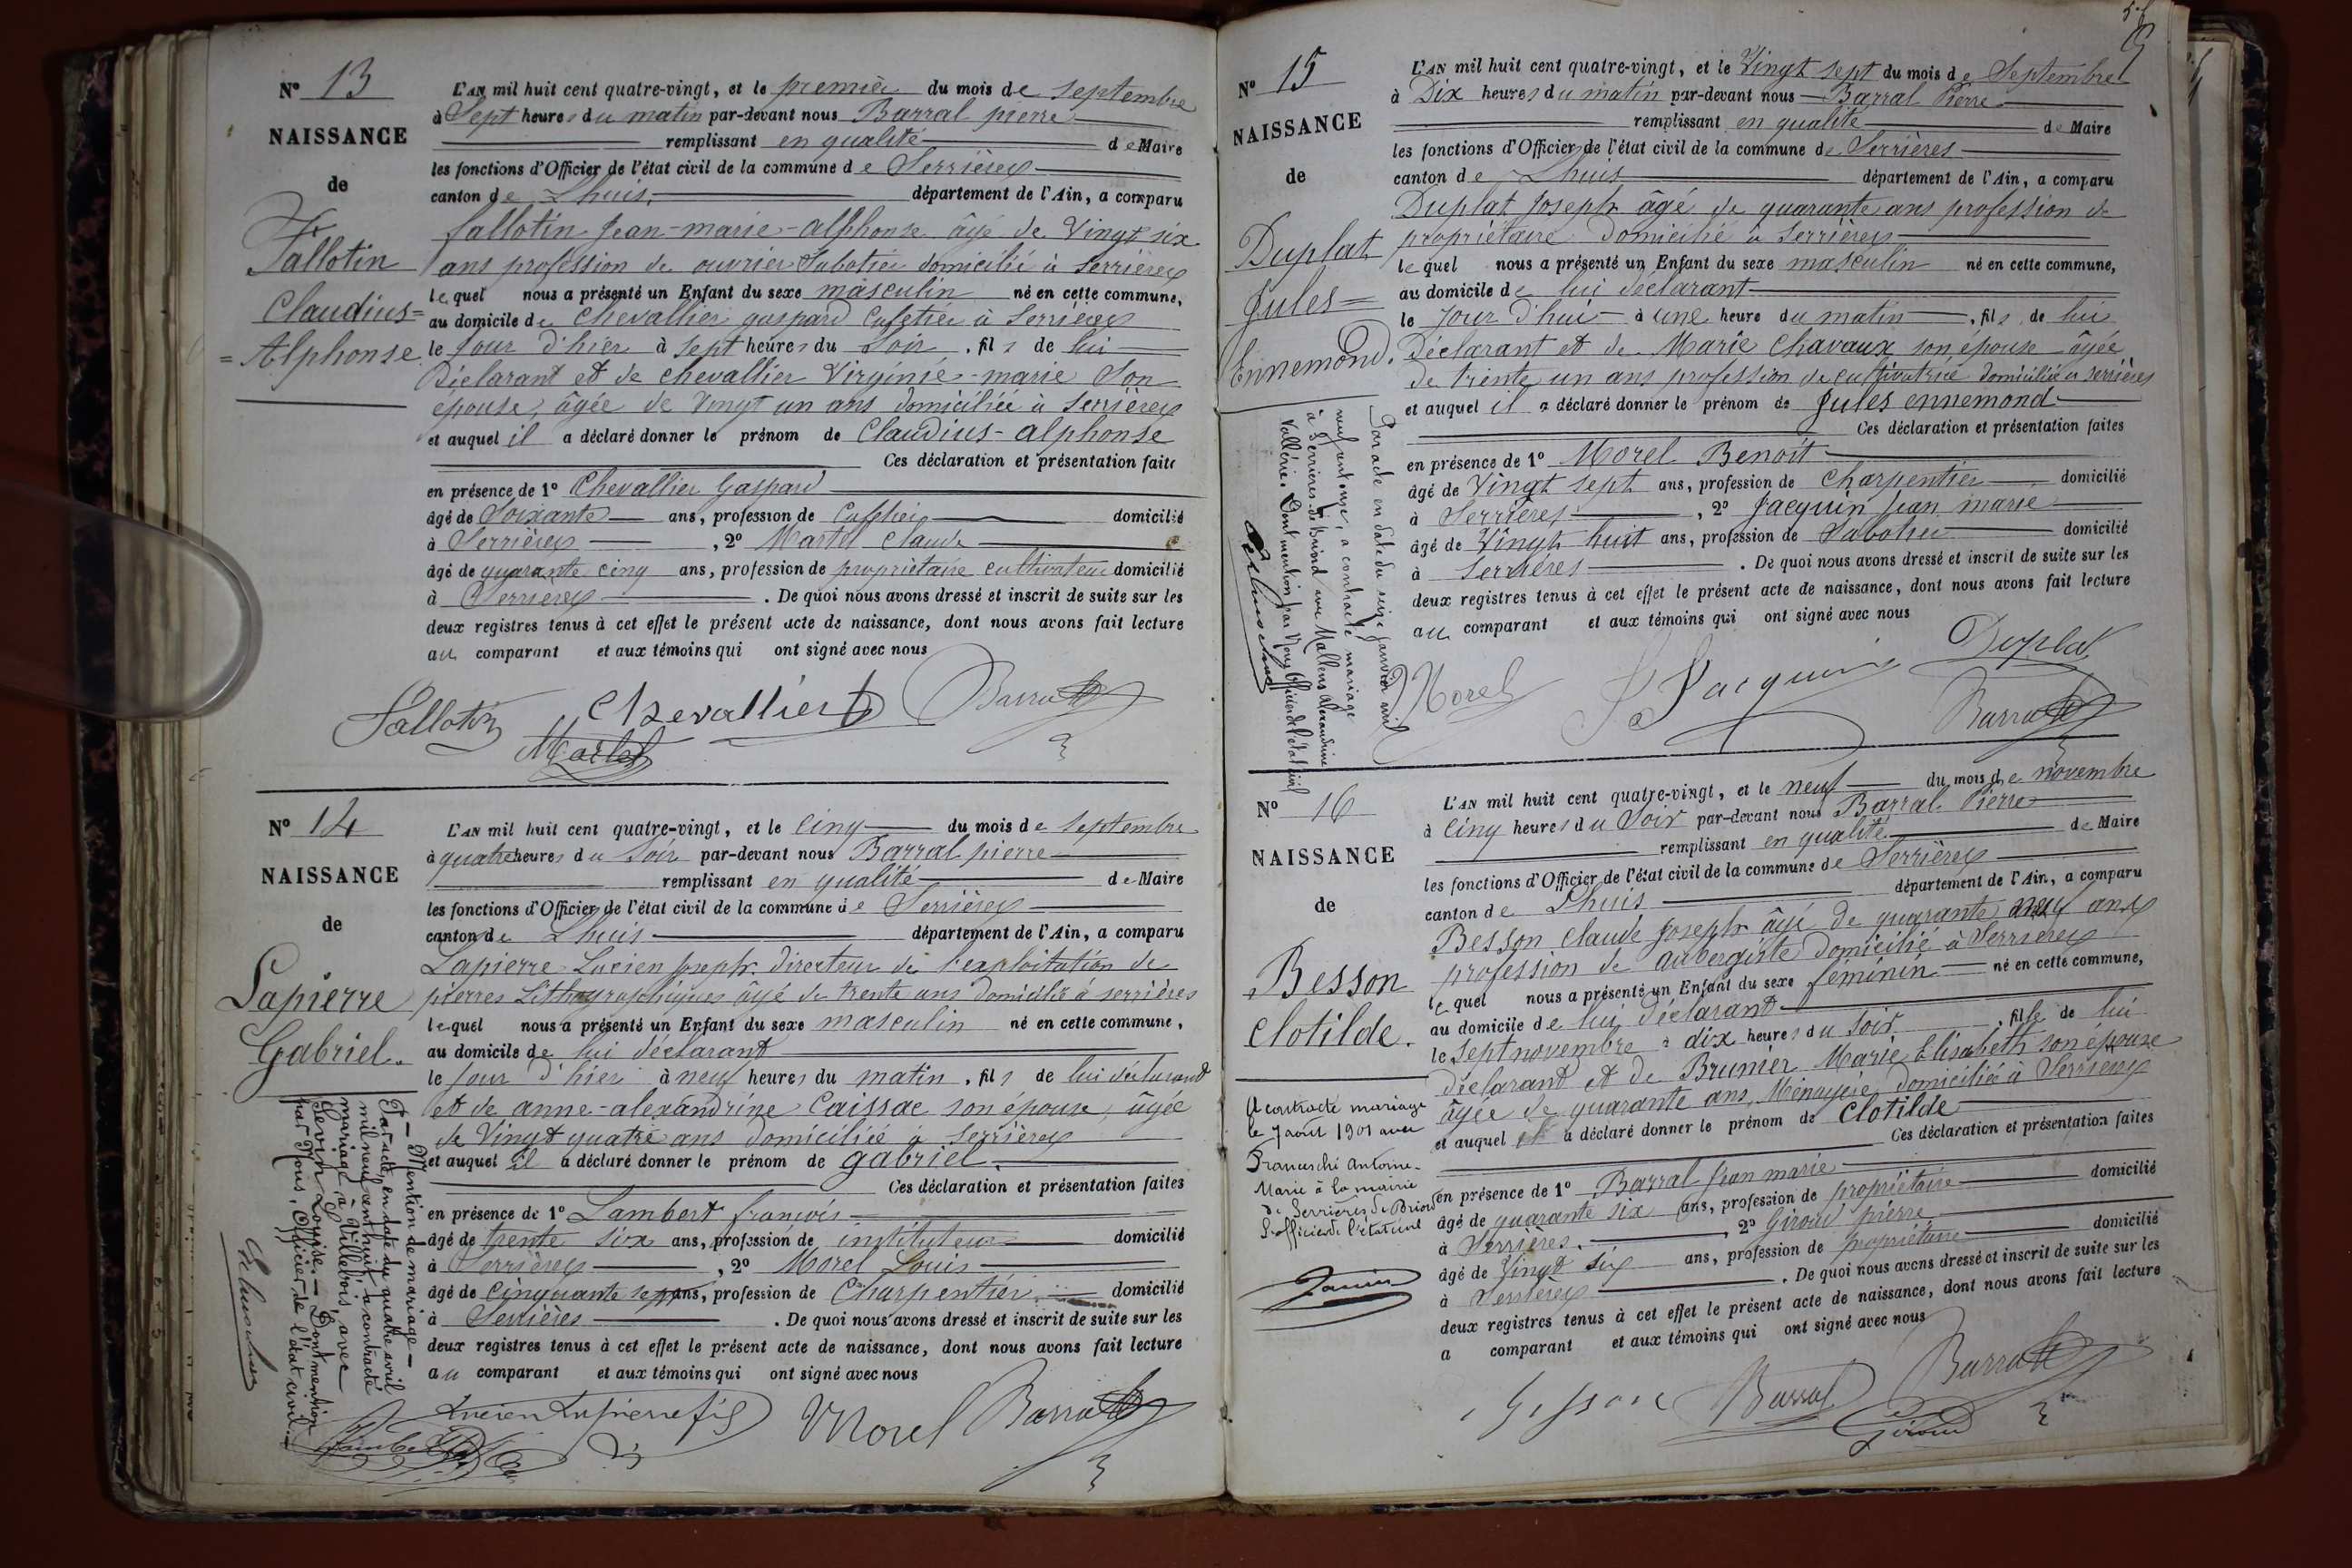 N° 13
NAISSANCE
de
Fallotin
Claudius=
=Alphonse
L'AN mil huit cent quatre-vingt, et le premier du mois de septembre
à Sept heures du matin par-devant nous Barral pierre
remplissant en qualité de Maire
les fonctions d'Officier de l'état civil de la commune de Serrières
canton de Lhuis, département de l'Ain, a comparu
fallotin Jean-marie-alphonse âgé de Vingt six
ans profession de ouvrier Sabotier domicilié à Serrières
lequel nous a présenté un Enfant du sexe masculin né en cette commune,
au domicile de Chevallier gaspard Cafetier à Serrières
le jour d'hier à sept heures du Soir, fils de lui
Déclarant et de chevallier Virginie-marie Son
épouse, âgée de Vingt un ans domiciliée à Serrières
et auquel il a déclaré donner le prénom de Claudius-alphonse
Ces déclaration et présentation faite
en présence de 1° Chevallier Gaspard
âgé de Soixante ans, profession de Cafetier domicilié
à Serrières, 2° Martel Claude
âgé de quarante cinq ans, profession de propriétaire cultivateur domicilié
à Serrières. De quoi nous avons dressé et inscrit de suite sur les
deux registres tenus à cet effet le présent acte de naissance, dont nous avons fait lecture
au comparant et aux témoins qui ont signé avec nous
Fallotin Chevallier Barral
Martel
N° 14
NAISSANCE
de
Lapierre
Gabriel.
L'AN mil huit cent quatre-vingt, et le cinq du mois de septembre
à quatre heures du Soir par-devant nous Barral pierre
remplissant en qualité de Maire
les fonctions d'Officier de l'état civil de la commune de Serrières
canton de Lhuis département de l'Ain, a comparu
Lapierre Lucien Joseph directeur de l'exploitation de
pierres Lithographiques âgé de trente ans domicilié à serrières
lequel nous a présenté un Enfant du sexe masculin né en cette commune,
au domicile de lui déclarant
le jour d'hier à neuf heures du matin, fils de lui déclarant
et de anne-alexandrine Caissac son épouse, âgée
de Vingt quatre ans domiciliée à serrières
et auquel il a déclaré donner le prénom de gabriel.
Ces déclaration et présentation faites
en présence de 1° Lambert françois
âgé de trente six ans, profession de instituteur domicilié
à Serrières, 2° Morel Louis
âgé de Cinquante sept ans, profession de Charpentier domicilié
à Serrières. De quoi nous avons dressé et inscrit de suite sur les
deux registres tenus à cet effet le présent acte de naissance, dont nous avons fait lecture
au comparant et aux témoins qui ont signé avec nous
– Mention de mariage –
Par acte, en date du quatre avril
mil neuf cent huit, a contracté
mariage à Villebois, avec
Sevin Louise. – Dont mention
par Nous, Officier de l'état civil.
Lucien Lapierre fils Morel Barral
Lambert
N° 15
NAISSANCE
de
Duplat
Jules=
Ennemond.
L'AN mil huit cent quatre-vingt, et le Vingt sept du mois de Septembre
à Dix heures du matin par-devant nous Barral Pierre
remplissant en qualité de Maire
les fonctions d'Officier de l'état civil de la commune de Serrières
canton de Lhuis département de l'Ain, a comparu
Duplat Joseph âgé de quarante ans profession de
propriétaire domicilié à Serrières
lequel nous a présenté un Enfant du sexe masculin né en cette commune,
au domicile de lui déclarant
le jour d'hui à une heure du matin, fils de lui
Déclarant et de Marie Chavaux son épouse âgée
de trente un ans profession de cultivatrice domiciliée à serrières
et auquel il a déclaré donner le prénom de Jules ennemond
Ces déclaration et présentation faites
en présence de 1° Morel Benoit
âgé de Vingt sept ans, profession de Charpentier domicilié
à Serrières, 2° Jacquin Jean marie
âgé de Vingt huit ans, profession de Sabotier domicilié
à Serrières. De quoi nous avons dressé et inscrit de suite sur les
deux registres tenus à cet effet le présent acte de naissance, dont nous avons fait lecture
au comparant et aux témoins qui ont signé avec nous
Par acte en date du seize janvier mil
neuf cent onze, a contracté mariage
à Serrières de Briord avec Mallens Alexandrine
Vallérie. Dont mention par Nous Officier de l'état civil
Duplat
Morel Jacquin
Barral
N° 16
NAISSANCE
de
Besson
Clotilde.
L'AN mil huit cent quatre-vingt, et le neuf du mois de novembre
à cinq heures du Soir par-devant nous Barral Pierre
remplissant en qualité de Maire
les fonctions d'Officier de l'état civil de la commune de Serrières
canton de Lhuis département de l'Ain, a comparu
Besson Claude Joseph âgé de quarante neuf ans
profession de aubergiste domicilié à Serrières
lequel nous a présenté un Enfant du sexe féminin né en cette commune,
au domicile de lui déclarant
le sept novembre à dix heures du Soir, fille de lui
déclarant et de Brunier Marie Elisabeth son épouse
âgée de quarante ans, Ménagère domiciliée à Serrières
et auquel il a déclaré donner le prénom de Clotilde
Ces déclaration et présentation faites
en présence de 1° Barral Jean marie
âgé de quarante six ans, profession de propriétaire domicilié
à Serrières, 2° Giroud pierre
âgé de Vingt six ans, profession de propriétaire domicilié
à Serrières. De quoi nous avons dressé et inscrit de suite sur les
deux registres tenus à cet effet le présent acte de naissance, dont nous avons fait lecture
a comparant et aux témoins qui ont signé avec nous
A contracté mariage
le 7 août 1901 avec
Franceschi Antoine-
Marie à la mairie
de Serrières de Briord
L'officier de l'état civil
Besson Barral Barral
Giroud